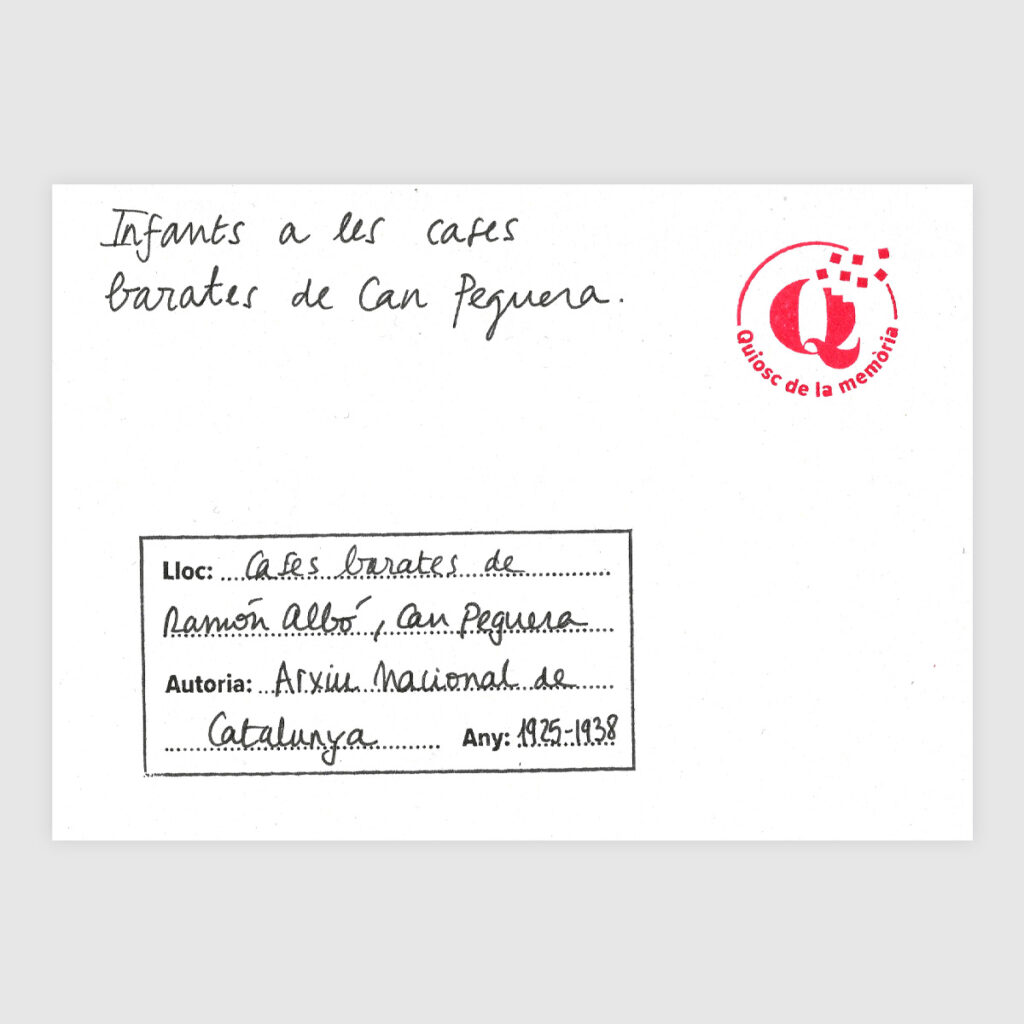 Infants a les cases
barates de Can Peguera.
Quiosc de la memòria
Lloc: Cases barates de
Ramón Albó, Can Peguera
Autoria: Arxiu Nacional de
Catalunya Any: 1925-1938